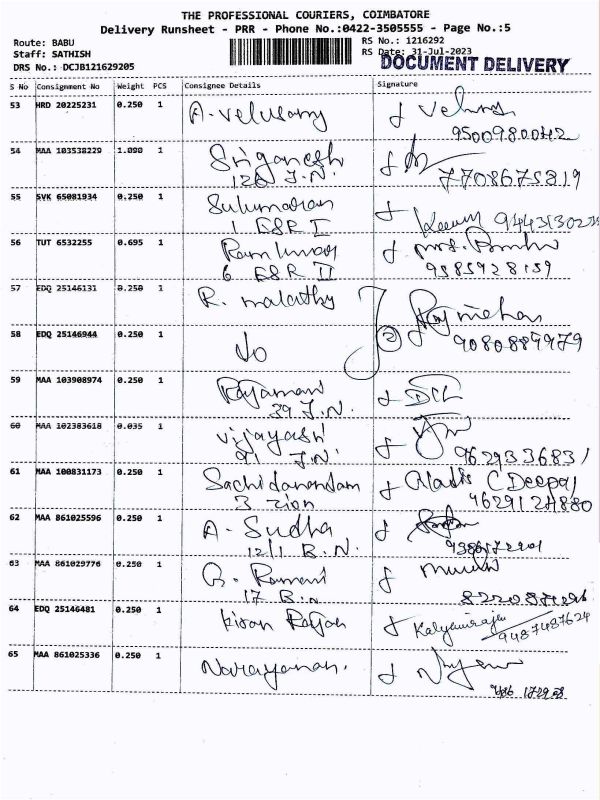 THE PROFESSIONAL COURIERS, COIMBATORE
Delivery Runsheet - PRR - Phone No.:0422-3505555 - Page No.:5
Route: BABU
Staff: SATHISH
DRS No.: DCJB121629205
RS No.: 1216292
RS Date: 31-Jul-2023
DOCUMENT DELIVERY
S No Consignment No Weight PCS Consignee Details Signature
53 HRD 20225231 0.250 1 A. Velusamy
9500980042
54 MAA 103538229 1.090 1 Sriganesh
126 J.N. 7708675819
55 SVK 65081934 0.250 1
1 ESR I
56 TUT 6532255 0.695 1 Ramkumar
6 ESR II
57 EDQ 25146131 0.250 1 R. malathy Rajmohan
58 EDQ 25146944 0.250 1 do 2 9080889979
59 MAA 103908974 0.250 1 Rajamani
39 J.N.
60 MAA 102383618 0.035 1 Vijayash
91 J.N. 9629336831
61 MAA 100831173 0.250 1 Sachidanandam Gladis C Deepa
3 zion
62 MAA 861025596 0.250 1 A. Sudha
12/1 B.N.
63 MAA 861029776 0.250 1 G. Ramani
17 B.N
64 EDQ 25146481 0.250 1 Kiran Rajan
9487487624
65 MAA 861025336 0.250 1 Narayanan.